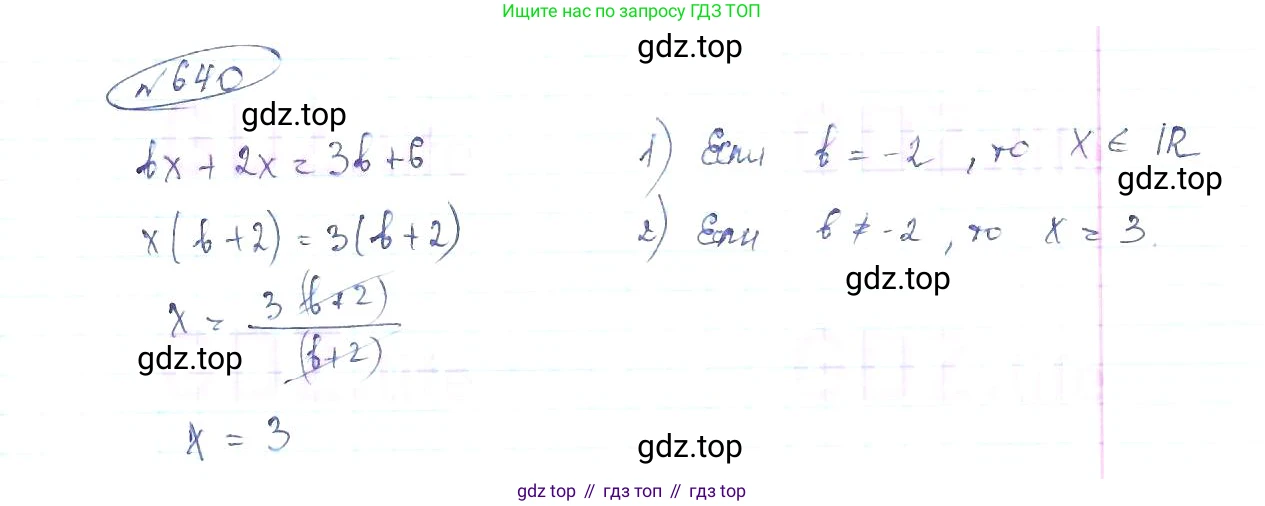 Ищите нас по запросу ГДЗ ТОП
gdz.top
№ 640
gdz.top
bx + 2x = 3b + 6
1) Если b = -2, то x ∈ ℝ
gdz.top
x(b + 2) = 3(b + 2)
2) Если b ≠ -2, то x = 3.
gdz.top
x = 3(b + 2) / (b + 2)
gdz.top
x = 3
gdz.top
gdz top // гдз топ // gdz top